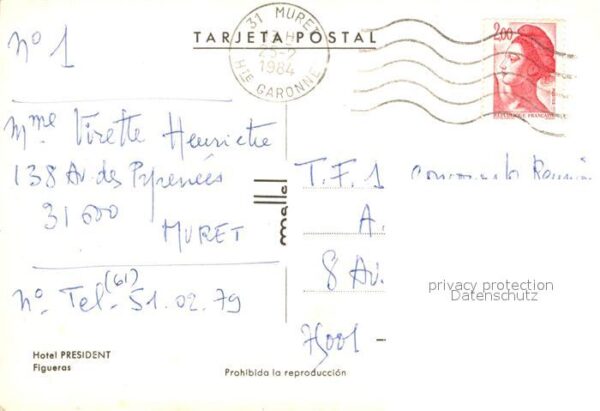 TARJETA POSTAL
31 MURET
25-2
1984
Hte GARONNE
2,00
REPUBLIQUE FRANÇAISE
N° 1
Mme Virette Henriette
138 Av. des Pyrenées
31600
MURET
N° Tel. (61) 51.02.79
T.F.1
A.
8 Av.
75001
privacy protection
Datenschutz
Hotel PRESIDENT
Figueras
Prohibida la reproducción